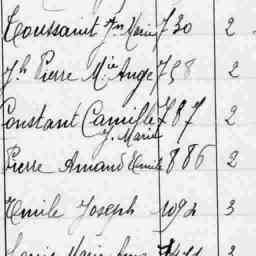 Toussaint Jn Marie 730 2
Jh Pierre Mie Ange 758 2
Constant Camille 787 2
J. Marie
Pierre Armand Emile 886 2
Emile Joseph 1092 3
Louis Marie